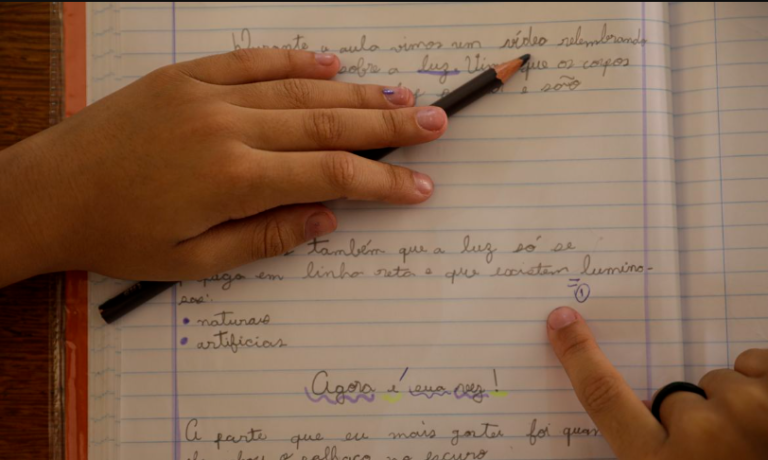 Durante a aula vimos um vídeo relembrando
sobre a luz. Vim que os corpos
e são
também que a luz só se
paga em linha reta e que existem lumino-
sos:
1
• naturais
• artificias
Agora é sua vez!
A parte que eu mais gostei foi quan
o palhaço no escuro